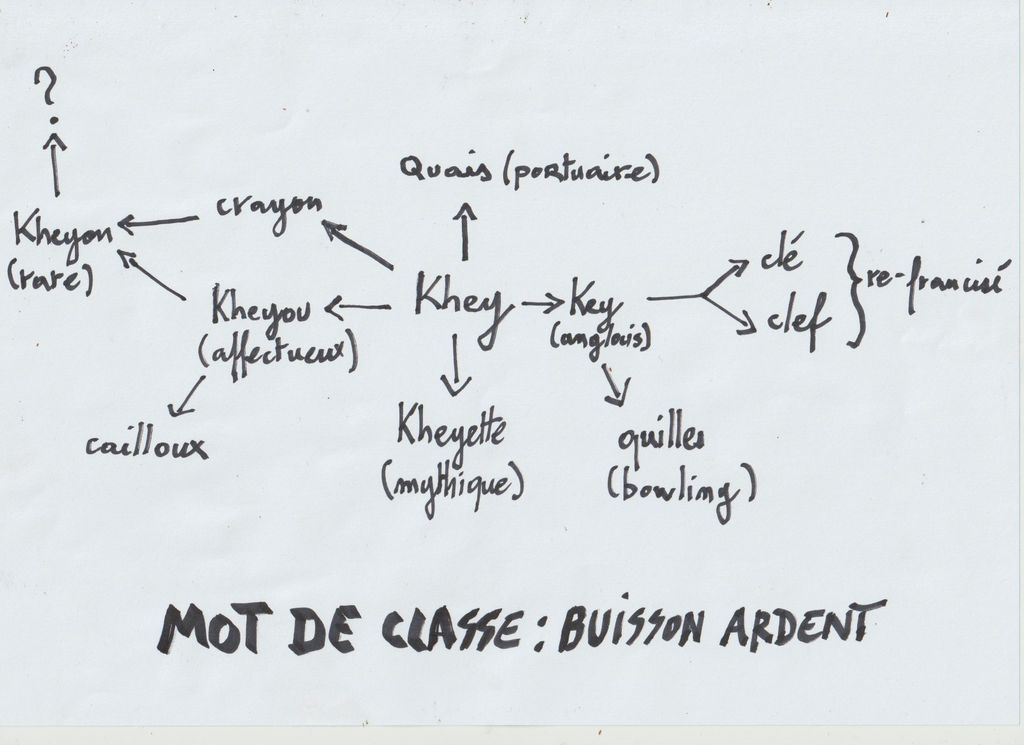 ?
Quais (portuaire)
crayon
Kheyon
(rare)
clé
re-francisé
Kheyou
(affectueux)
Khey
Key
(anglais)
clef
cailloux
Kheyette
(mythique)
quilles
(bowling)
MOT DE CLASSE : BUISSON ARDENT